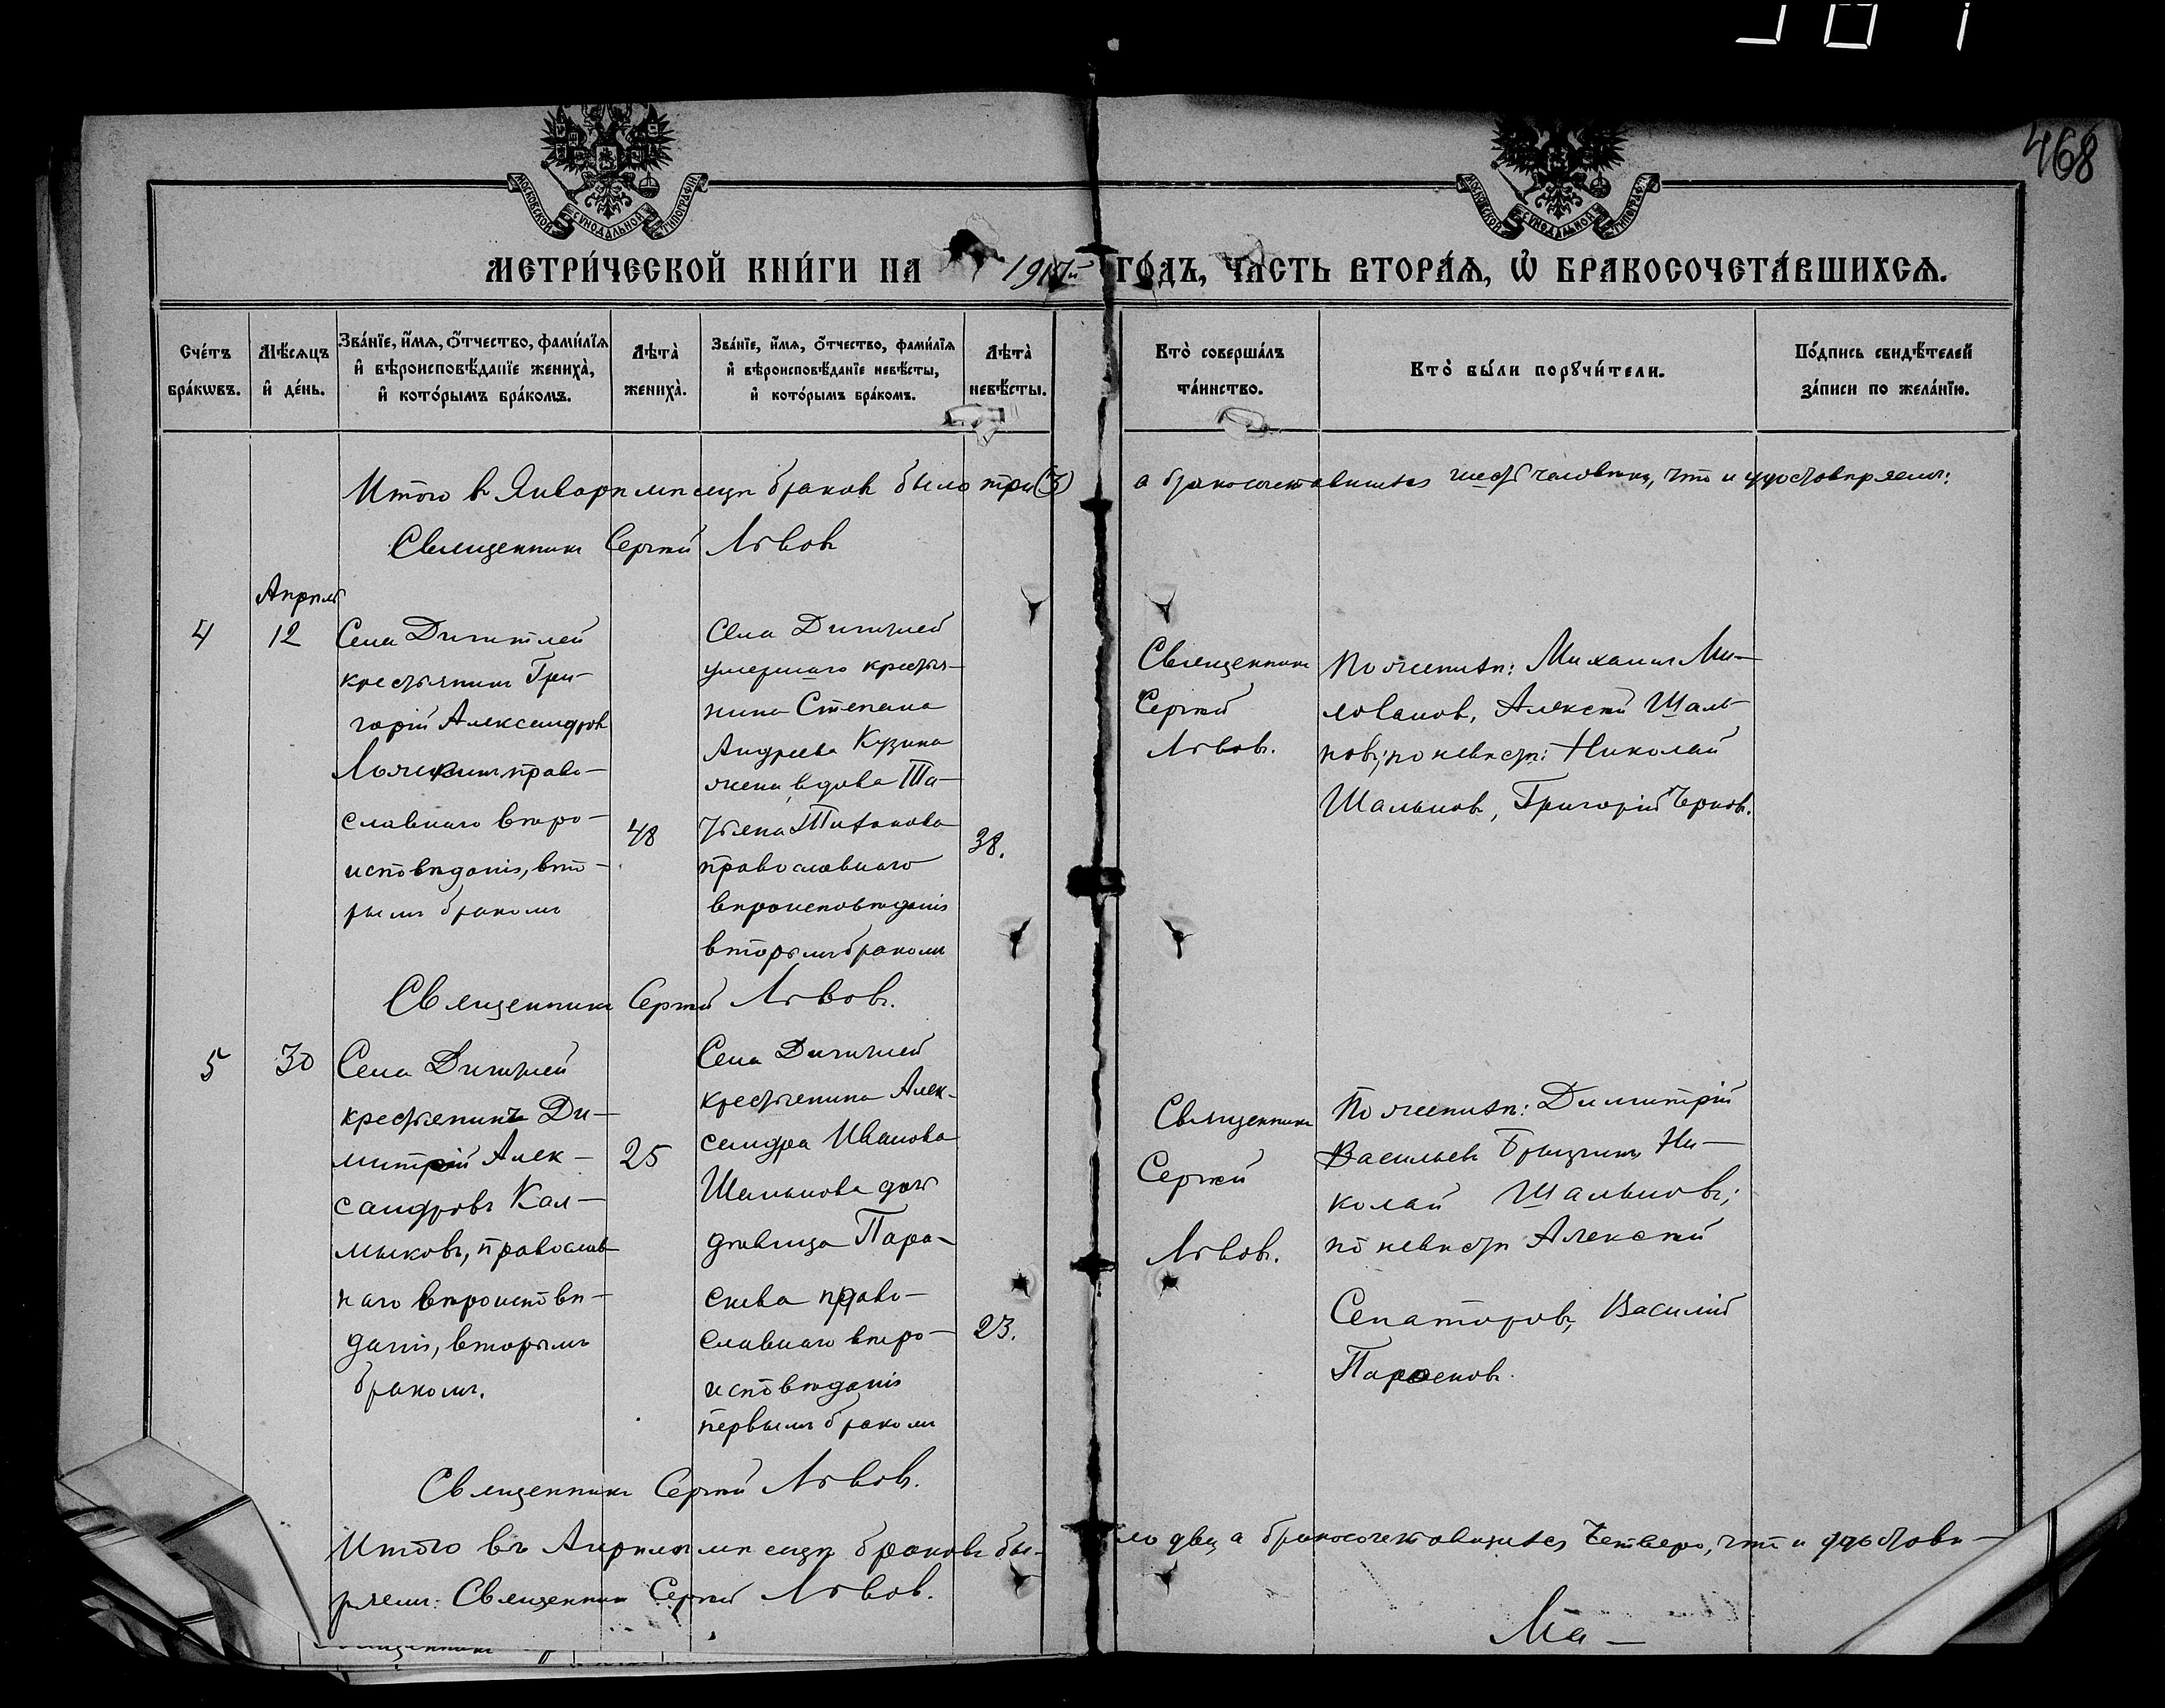 468
МОСКОВСКОЙ СѴНОДАЛЬНОЙ ТИПОГРАФІИ
МОСКОВСКОЙ СѴНОДАЛЬНОЙ ТИПОГРАФІИ
МЕТРИ́ЧЕСКОЙ КНИ́ГИ НА 1917й ГО́ДЪ, ЧА́СТЬ ВТОРА́Ѧ, Ѡ҆ БРАКОСОЧЕТА́ВШИХСѦ.
Сче́тъ бра́кѡвъ.
Мѣ́сѧцъ и҆ де́нь.
Зва́нїе, и҆́мѧ, ѻ҆́тчество, фами́лїѧ и҆ вѣроисповѣ́данїе жениха̀, и҆ кото́рымъ бра́комъ.
Лѣта̀ жениха̀.
Зва́нїе, и҆́мѧ, ѻ҆́тчество, фами́лїѧ и҆ вѣроисповѣ́данїе невѣ́сты, и҆ кото́рымъ бра́комъ.
Лѣта̀ невѣ́сты.
Кто̀ соверша́лъ та́инство.
Кто̀ бы́ли порꙋчи́тели.
По́дпись свидѣ́телей за́писи по жела́нїю.
Итого въ Январѣ мѣсяцѣ браковъ было три (3) а бракосочетавшихся шесть человѣкъ, что и удостовѣряемъ:
Священникъ Сергѣй Львовъ
Апрѣль
4
12
Села Дигитлей
крестьянинъ Гри-
горій Александровъ
право-
славнаго вѣро-
исповѣданія, вто-
рымъ бракомъ
48
Села Дигитлей
умершаго крестья-
нина Степана
Андреева Кузина
жена, вдова Та-
тьяна Титакова
православнаго
вѣроисповѣданія
вторымъ бракомъ
38.
Священникъ
Сергѣй
Львовъ.
По женихѣ: Михаилъ Ми-
ловановъ, Алексѣй Шаль-
новъ; по невѣстѣ: Николай
Шальновъ, Григорій Черновъ.
Священникъ Сергѣй Львовъ.
5
30
Села Дигитлей
крестьянинъ Ди-
митрій Алек-
сандровъ Кал-
мыковъ, православ-
наго вѣроисповѣ-
данія, вторымъ
бракомъ.
25
Села Дигитлей
крестьянина Алек-
сандра Иванова
Шальнова дочь
дѣвица Пара-
скева право-
славнаго вѣро-
исповѣданія
первымъ бракомъ
23.
Священникъ
Сергѣй
Львовъ.
По женихѣ: Димитрій
Васильевъ Брызгинъ, Ни-
колай Шальновъ;
по невѣстѣ Алексѣй
Сенаторовъ, Василій
Парсековъ.
Священникъ Сергѣй Львовъ.
Итого въ Апрѣлѣ мѣсяцѣ браковъ бы-ло два, а бракосочетавшихся четверо, что и удостовѣ-
ряемъ: Священникъ Сергѣй Львовъ.
Ма-